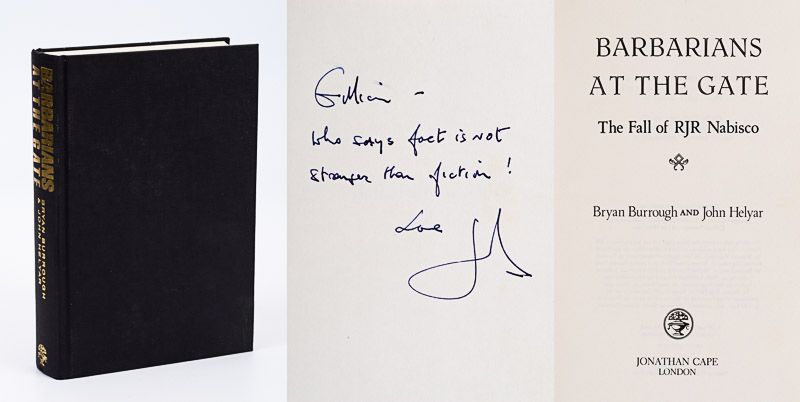 BARBARIANS
AT THE GATE
BRYAN BURROUGH
& JOHN HELYAR
Gillian –
Who says fact is not
stranger than fiction !
Love
BARBARIANS
AT THE GATE
The Fall of RJR Nabisco
Bryan Burrough AND John Helyar
JONATHAN CAPE
LONDON